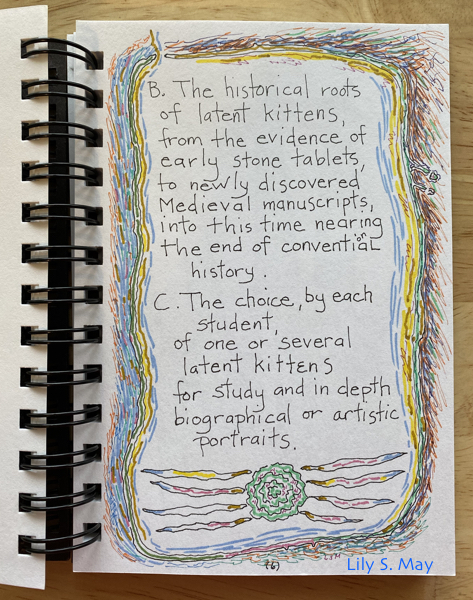 B. The historical roots
of latent kittens,
from the evidence of
early stone tablets,
to newly discovered
Medieval manuscripts,
into this time nearing
the end of conventional
history.
C. The choice, by each
student,
of one or several
latent kittens
for study and in depth
biographical or artistic
portraits.
(6)
LSM
Lily S. May